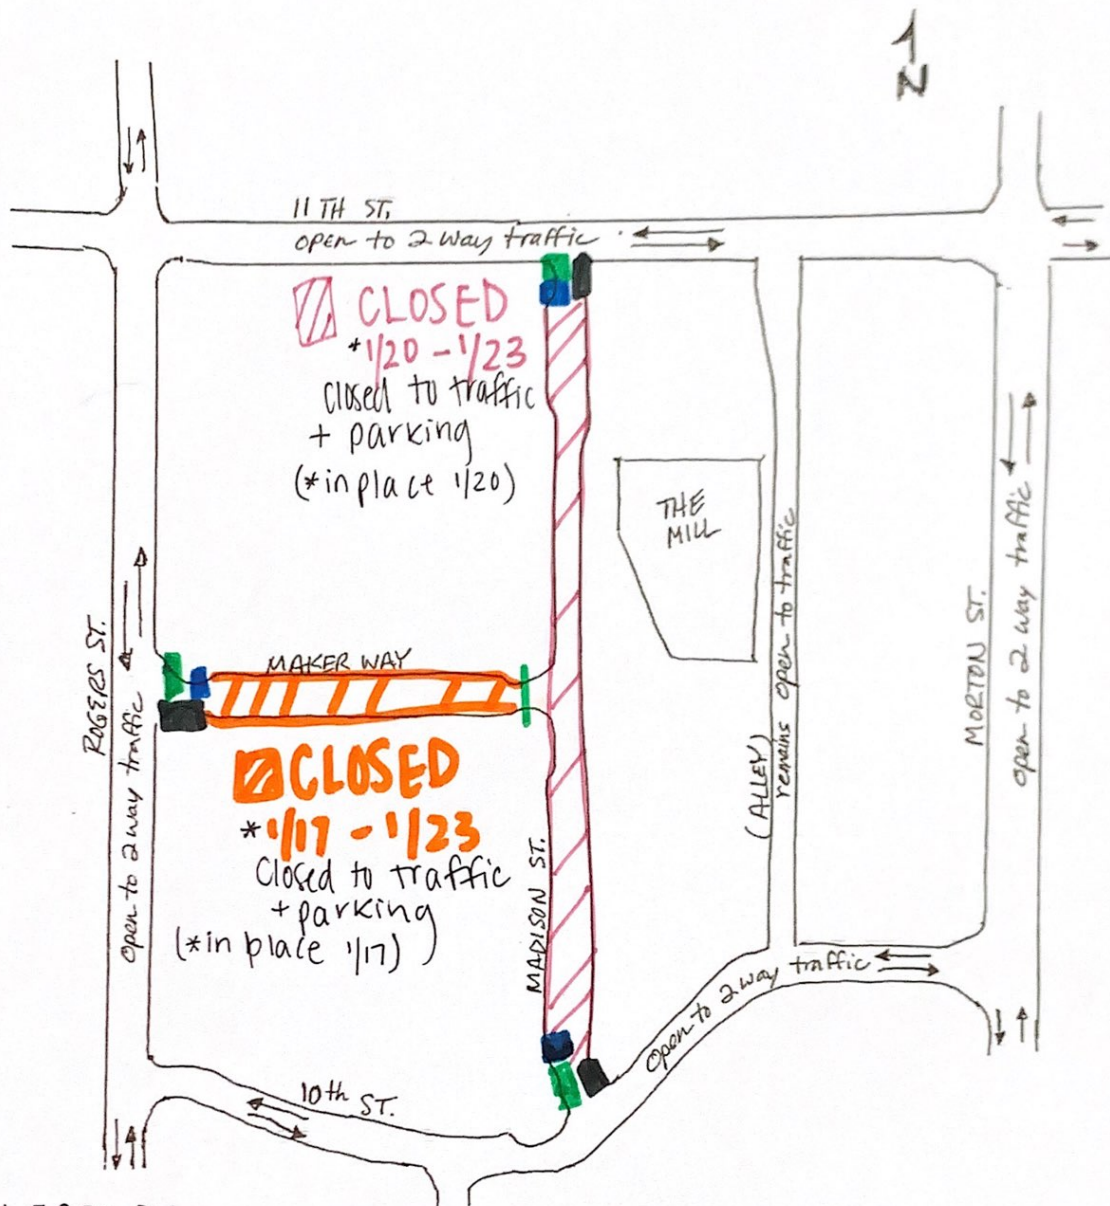 N
11TH ST.
open to 2 way traffic
CLOSED
*1/20 - 1/23
closed to traffic
+ parking
(*in place 1/20)
THE
MILL
MAKER WAY
ROGERS ST.
open to 2 way traffic
CLOSED
*1/17 - 1/23
Closed to traffic
+ parking
(*in place 1/17))
MADISON ST.
(ALLEY)
remains open to traffic
MORTON ST.
open to 2 way traffic
open to 2 way traffic
10th ST.